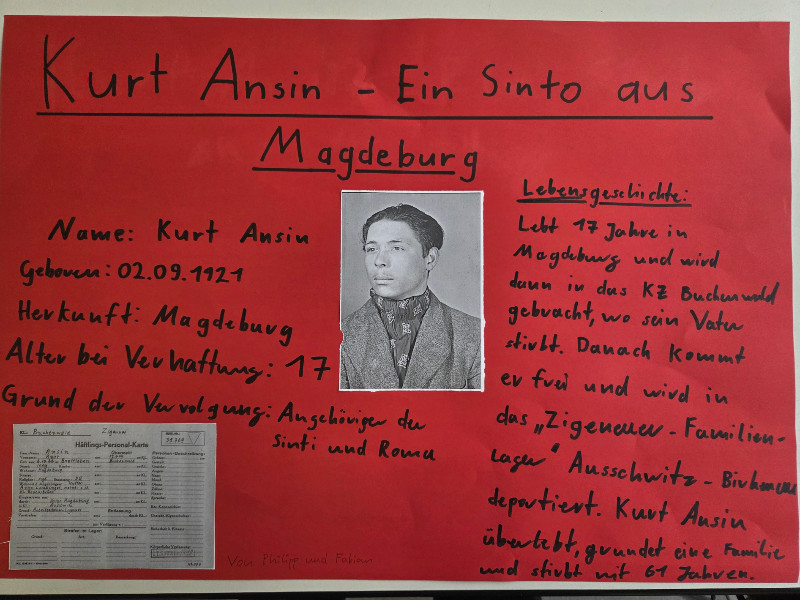 Kurt Ansin – Ein Sinto aus
Magdeburg
Name: Kurt Ansin
Geboren: 02.09.1921
Herkunft: Magdeburg
Alter bei Verhaftung: 17
Grund der Vervolgung: Angehöriger der
Sinti und Roma
Lebensgeschichte:
Lebt 17 Jahre in
Magdeburg und wird
dann in das KZ Buchenwald
gebracht, wo sein Vater
stirbt. Danach kommt
er frei und wird in
das „Zigeuner-Familien-
lager“ Ausschwitz-Birkenau
deportiert. Kurt Ansin
überlebt, gründet eine Familie
und stirbt mit 61 Jahren.
Buchenwald Zigeuner
Häftlings-Personal-Karte
Von Philipp und Fabian